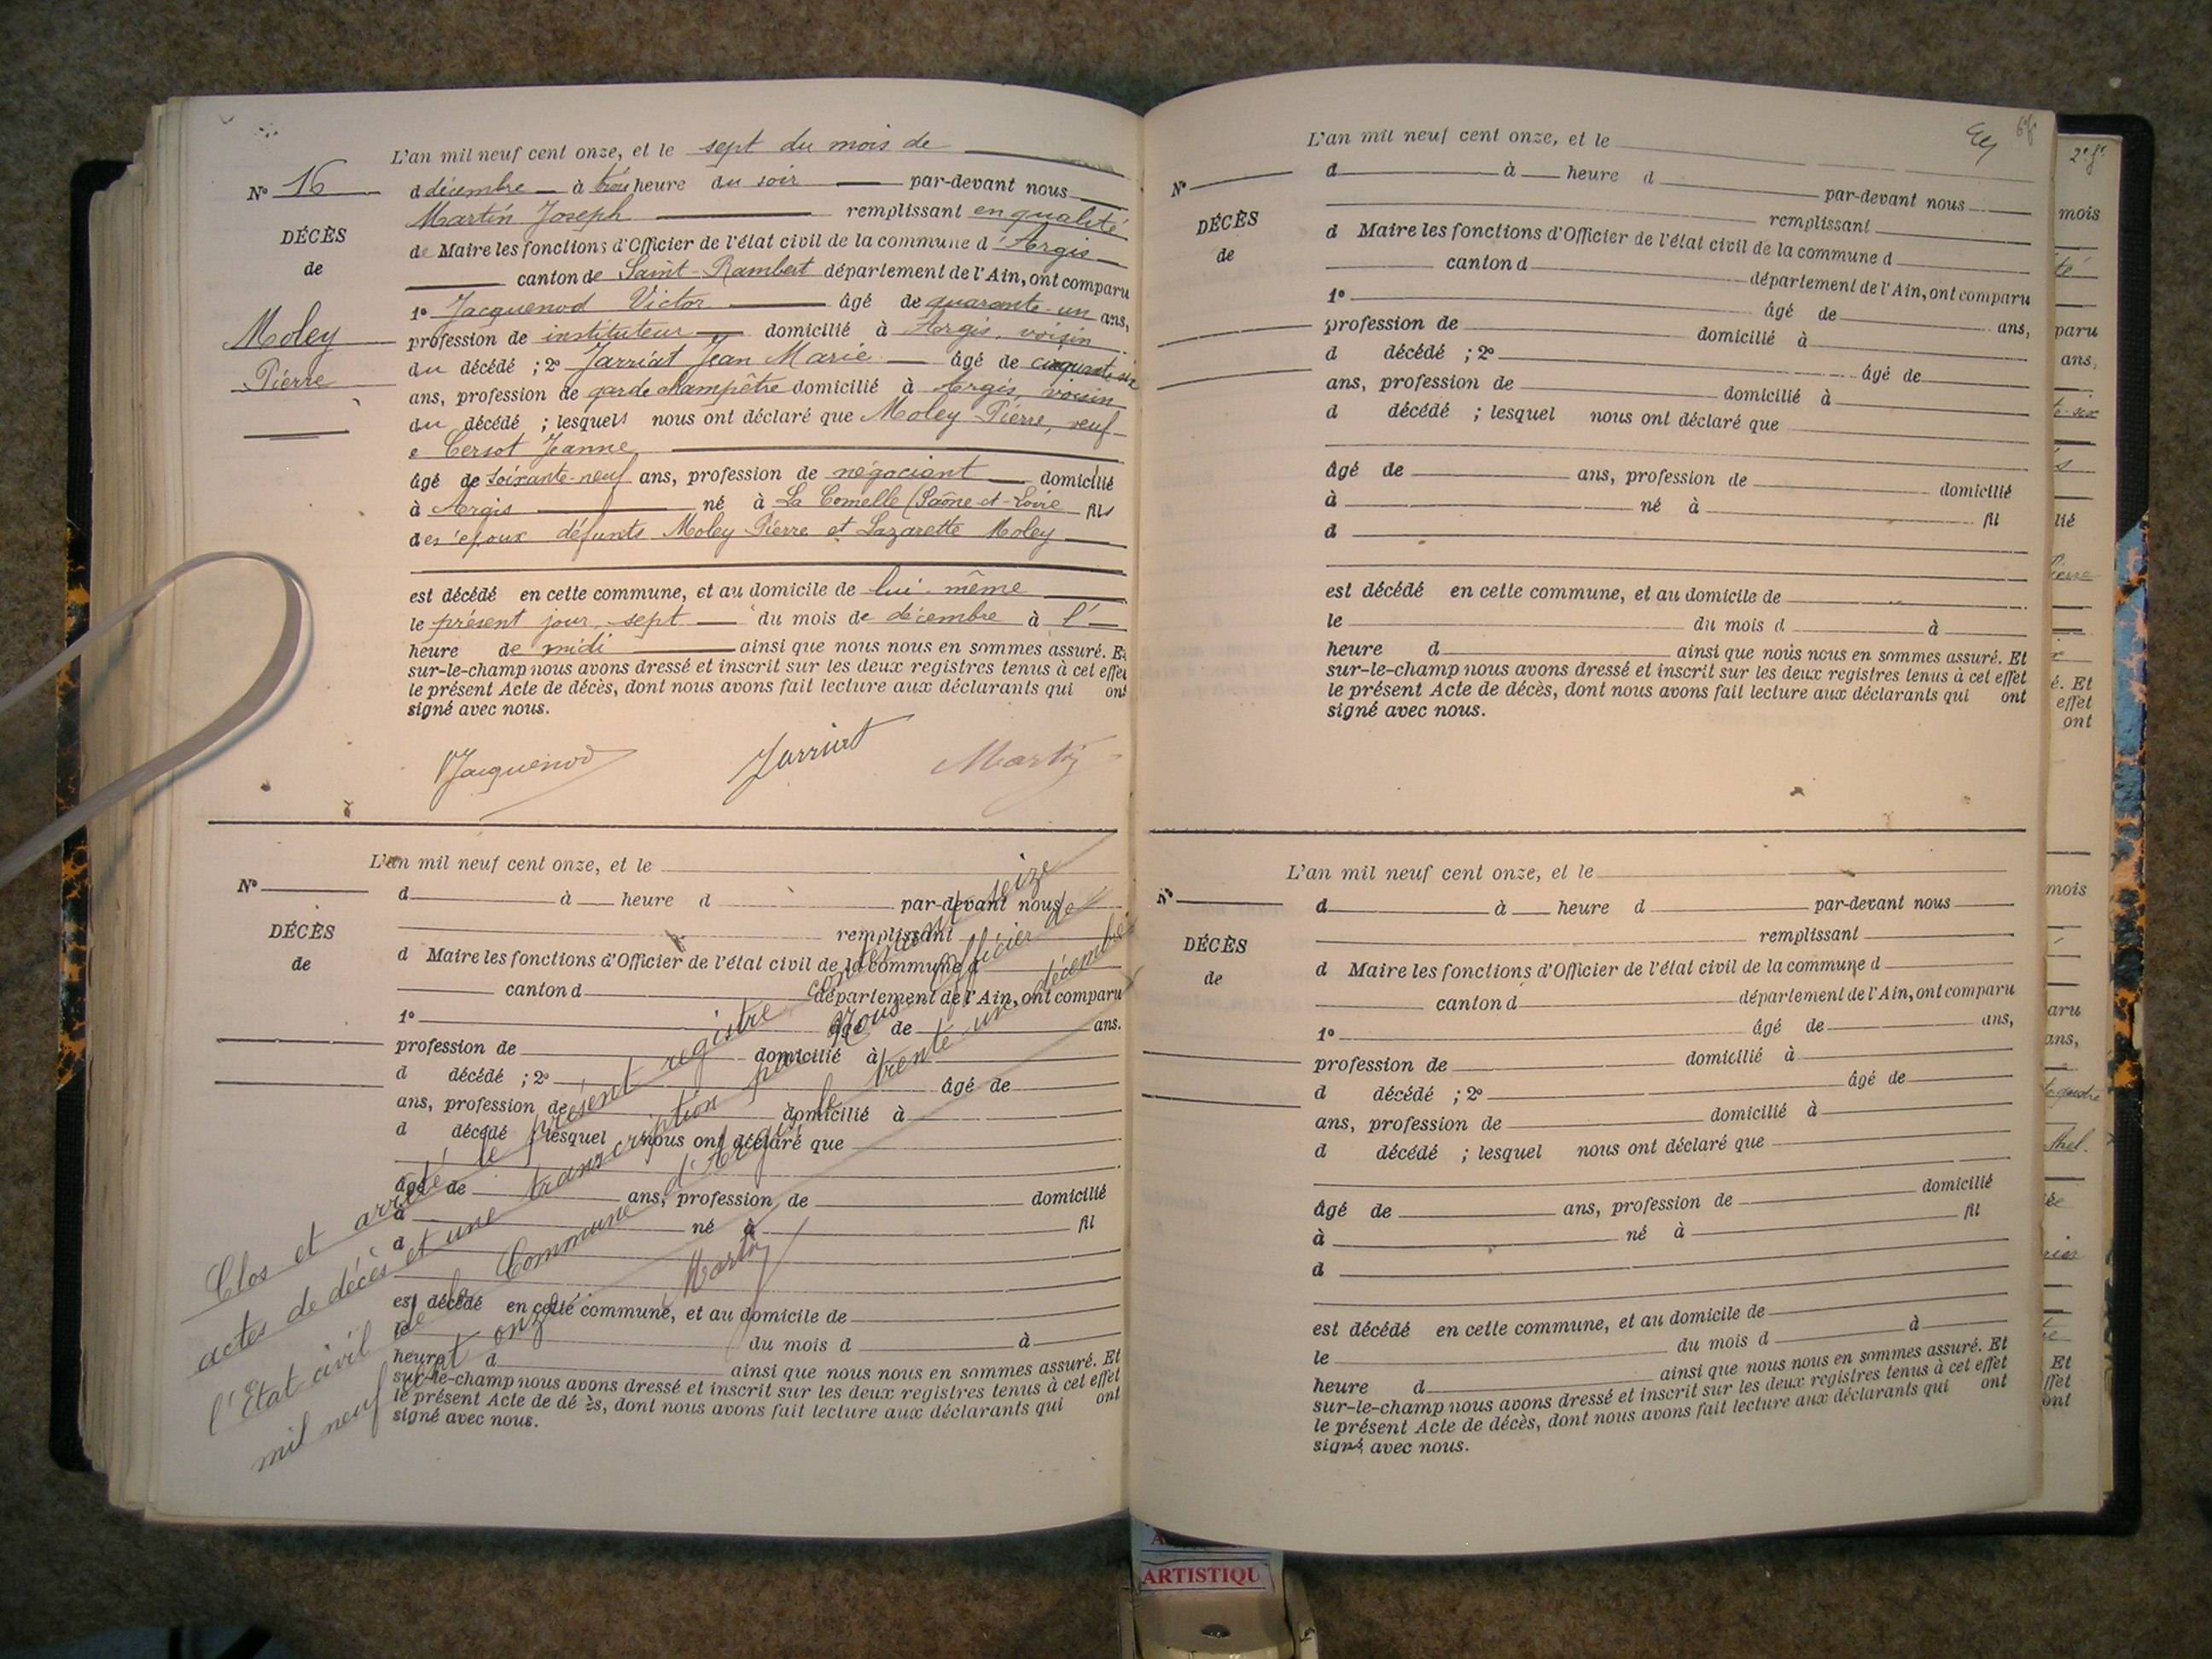 L'an mil neuf cent onze, et le sept du mois de
N° 16
d décembre à trois heure du soir par-devant nous
Martin Joseph remplissant en qualité
DÉCÈS
de Maire les fonctions d'Officier de l'état civil de la commune d'Argis
de
canton de Saint-Rambert département de l'Ain, ont comparu
1° Jacquenod Victor âgé de quarante-un ans,
Moley
profession de instituteur domicilié à Argis, voisin
du décédé ; 2° Jarriat Jean Marie âgé de cinquante six
Pierre
ans, profession de garde champêtre domicilié à Argis, voisin
du décédé ; lesquels nous ont déclaré que Moley Pierre, veuf
Jeanne
âgé de soixante-neuf ans, profession de négociant domicilié
à Argis né à La Comelle (Saône-et-Loire fils
des époux défunts Moley Pierre et Lazarette Moley
est décédé en cette commune, et au domicile de lui-même
le présent jour, sept du mois de décembre à l'
heure de midi ainsi que nous nous en sommes assuré. Et
sur-le-champ nous avons dressé et inscrit sur les deux registres tenus à cet effet
le présent Acte de décès, dont nous avons fait lecture aux déclarants qui ont
signé avec nous.
VJacquenod Jarriat Martin
L'an mil neuf cent onze, et le
N°
d à heure d par-devant nous
remplissant
DÉCÈS
d Maire les fonctions d'Officier de l'état civil de la commune d
de
canton d département de l'Ain, ont comparu
1° âgé de ans.
profession de domicilié à
d décédé ; 2° âgé de
ans, profession de domicilié à
d décédé ; lesquel nous ont déclaré que
âgé de ans, profession de domicilié
à né à fil
d
est décédé en cette commune, et au domicile de
le du mois d à
heure d ainsi que nous nous en sommes assuré. Et
sur-le-champ nous avons dressé et inscrit sur les deux registres tenus à cet effet
le présent Acte de décès, dont nous avons fait lecture aux déclarants qui ont
signé avec nous.
Clos et arrêté le présent registre contenant seize
actes de décès et une transcription par Nous Officier de
l'Etat civil de la Commune d'Argis le trente un décembre
mil neuf cent onze.
Martin
L'an mil neuf cent onze, et le
N°
d à heure d par-devant nous
remplissant
DÉCÈS
d Maire les fonctions d'Officier de l'état civil de la commune d
de
canton d département de l'Ain, ont comparu
1° âgé de ans,
profession de domicilié à
d décédé ; 2° âgé de
ans, profession de domicilié à
d décédé ; lesquel nous ont déclaré que
âgé de ans, profession de domicilié
à né à fil
d
est décédé en cette commune, et au domicile de
le du mois d à
heure d ainsi que nous nous en sommes assuré. Et
sur-le-champ nous avons dressé et inscrit sur les deux registres tenus à cet effet
le présent Acte de décès, dont nous avons fait lecture aux déclarants qui ont
signé avec nous.
L'an mil neuf cent onze, et le
N°
d à heure d par-devant nous
remplissant
DÉCÈS
d Maire les fonctions d'Officier de l'état civil de la commune d
de
canton d département de l'Ain, ont comparu
1° âgé de ans,
profession de domicilié à
d décédé ; 2° âgé de
ans, profession de domicilié à
d décédé ; lesquel nous ont déclaré que
âgé de ans, profession de domicilié
à né à fil
d
est décédé en cette commune, et au domicile de
le du mois d à
heure d ainsi que nous nous en sommes assuré. Et
sur-le-champ nous avons dressé et inscrit sur les deux registres tenus à cet effet
le présent Acte de décès, dont nous avons fait lecture aux déclarants qui ont
signé avec nous.
mois
paru
ans,
lié
é. Et
effet
ont
mois
aru
ans,
Et
ffet
ont
ARTISTIQU